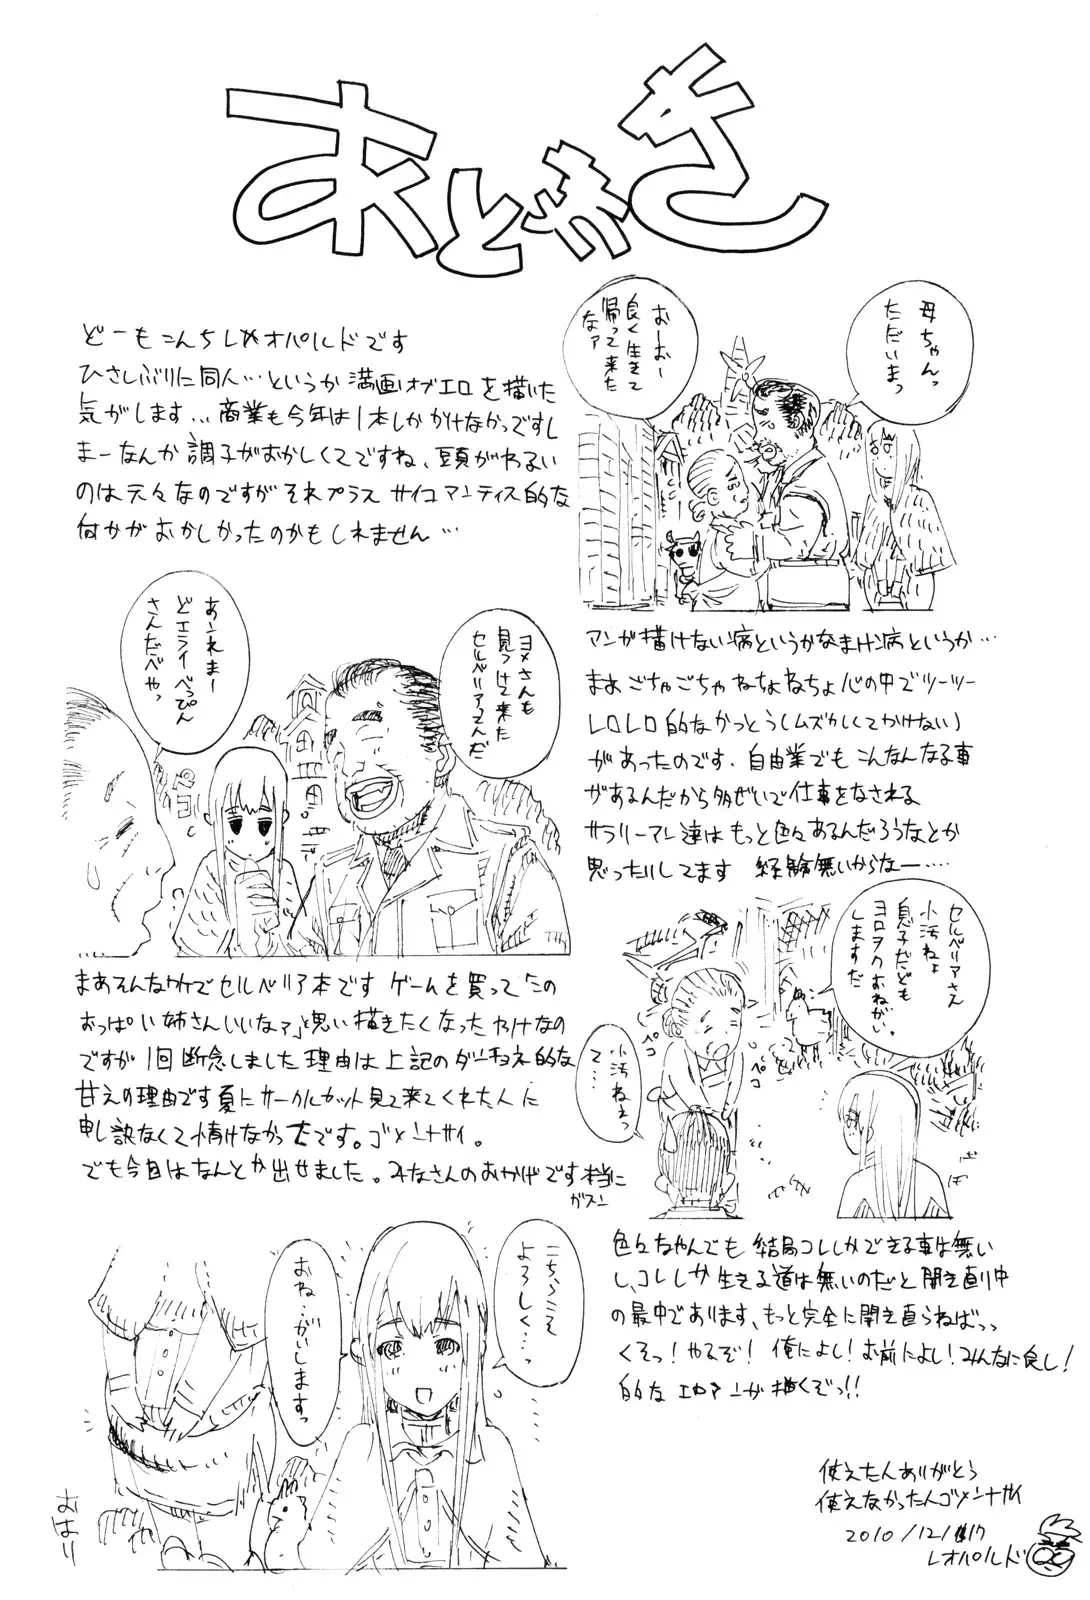 あとがき
どーもこんちしゃオパルドです
ひさしぶりに同人…というか漫画オブエロを描いた
気がします…商業も今年は1本しかかけなかっですし
まーなんか調子がおかしくてですね、頭がわるい
のは元々なのですがそれプラス サイコマンティス的な
何かがおかしかったのかもしれません…
母ちゃんっ
ただいまっ
おーおー
良く生きて
帰って来た
なァ
ヨメさんも
見つけて来た
セルベリアさんだ
あんれまー
どエライべっぴん
さんだべやっ
マンガ描けない病というかなまけン病というか…
まあごちゃごちゃねちょねちょ心の中でツーツー
レロレロ的なかっとう(ムズかしくてかけない)
があったのです、自由業でもこんなんなる事
があるんだから多ぜいで仕事をなされる
サラリーマン達はもっと色々あるんだろうなとか
思ったりしてます 経験無いからなー…
まあそんなワケでセルベリア本です ゲームを買って「この
おっぱい姉さんいいなァ」と思い描きたくなったわけなの
ですが1回断念しました理由は上記のダーチョネ的な
甘えの理由です夏にサークルカット見て来てくれた人に
申し訳なくて情けなかったです。ゴメンナサイ。
でも今回はなんとか出せました。みなさんのおかげです本当に
セルベリアさん
小汚ねぇ
息子だども
ヨロヲクおねがい
しますだ
小汚ねぇっ
て…
ペコ
ペコ
色々なやんでも結局コレしかできる事は無い
し、コレしか生きる道は無いのだと開き直り中
の最中であります、もっと完全に開き直らねばっっ
くそっ!やるぞ! 俺によし!お前によし!みんなに良し!
的なエロマンガ描くぞっ!!
こちらこそ
よろしく…っ
おね…がいしますっ
おはり
使えたんありがとう
使えなかったんゴメンナサイ
2010/12/17
レオパルド